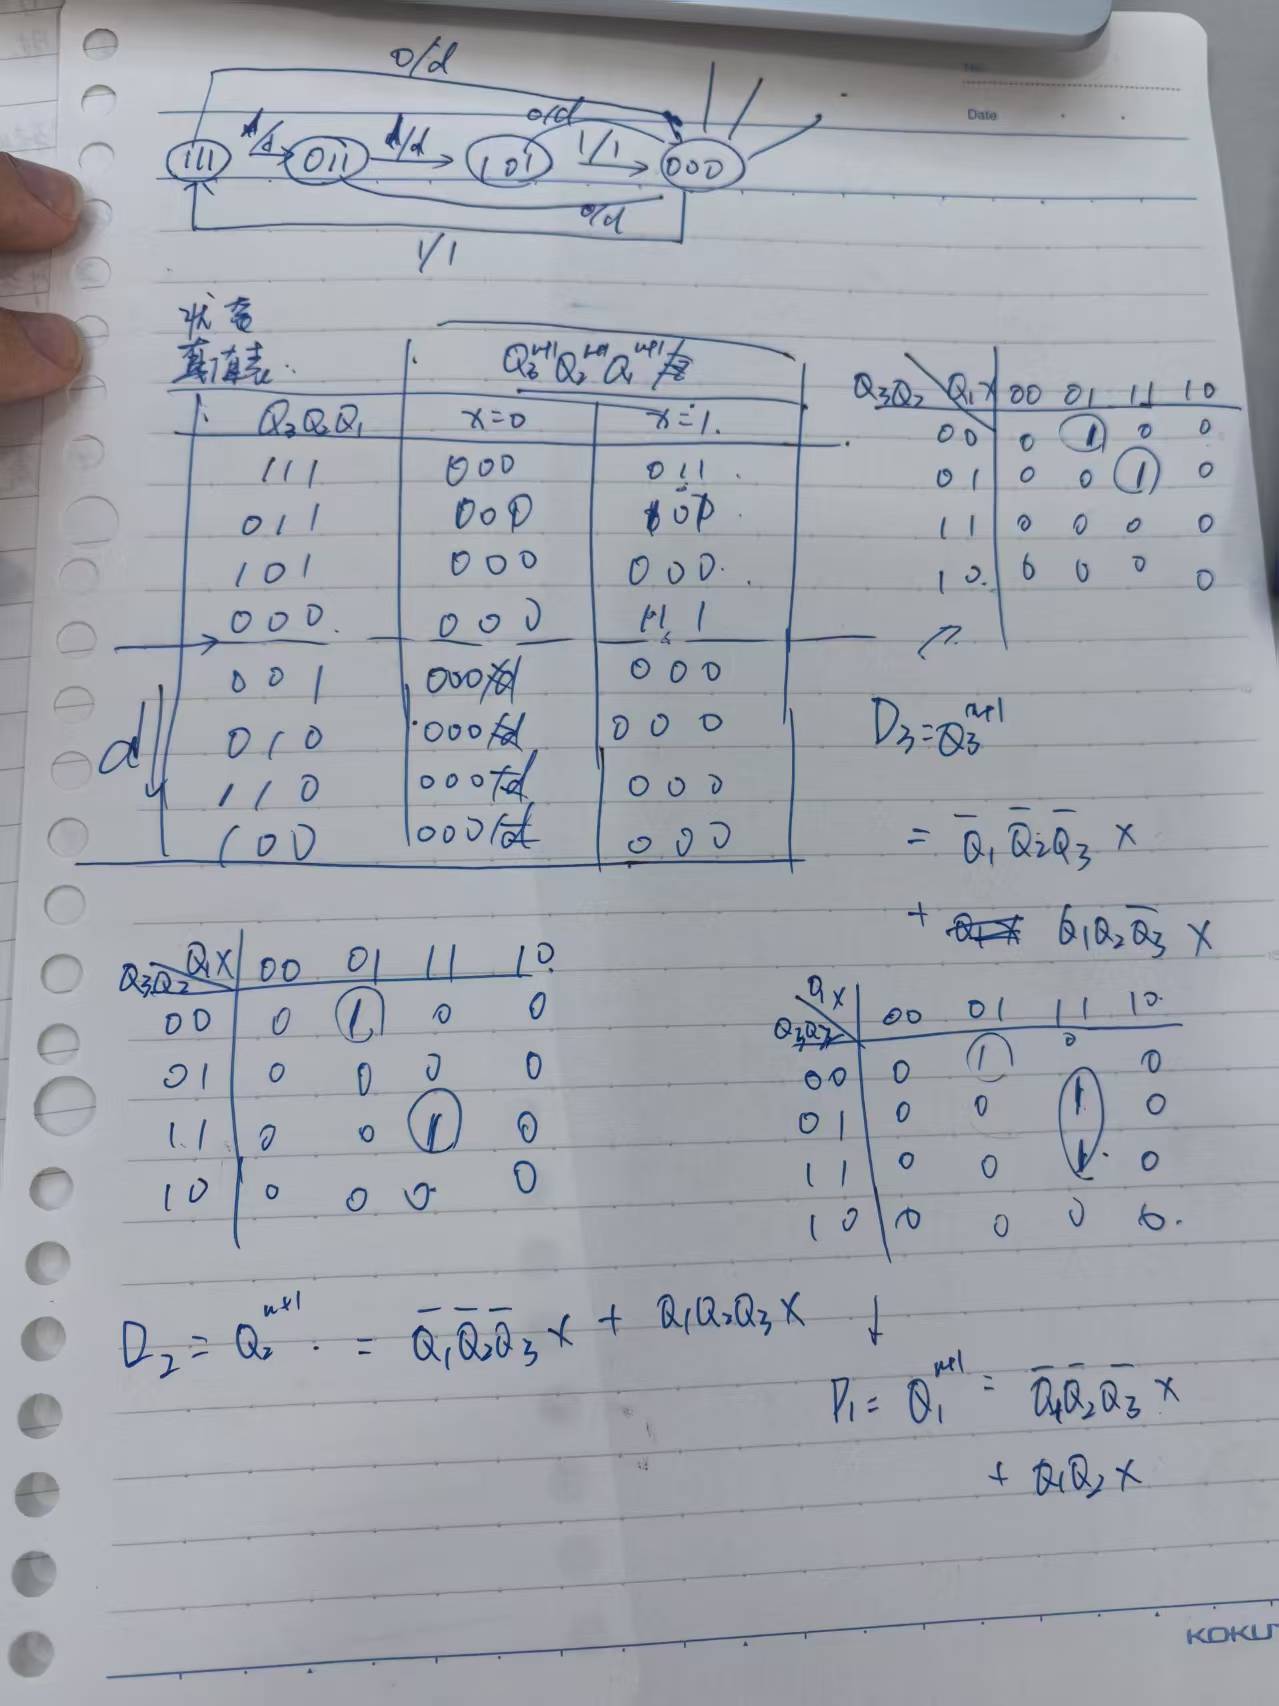 No.
Date
0/d
0/d
111 d/d 011 d/d 101 1/1 000
0/d
1/1
状态
真值表.
Q₃ⁿ⁺¹Q₂ⁿ⁺¹Q₁ⁿ⁺¹/z
Q₃Q₂Q₁ x=0 x=1.
111 000 011
011 000
101 000 000
000 000 111
001 000/d 000
d 010 000/d 000
110 000/d 000
100 000/d 000
Q₃Q₂ Q₁X 00 01 11 10
00 0 1 0 0
01 0 0 1 0
11 0 0 0 0
10 0 0 0 0
D₃=Q₃ⁿ⁺¹
= Q̄₁Q̄₂Q̄₃ X
+ Q₁Q₂Q̄₃ X
Q₃Q₂ Q₁X 00 01 11 10
00 0 1 0 0
01 0 0 0 0
11 0 0 1 0
10 0 0 0 0
Q₁X 00 01 11 10
00 0 1 0 0
01 0 0 1 0
11 0 0 1 0
10 0 0 0 0
D₂ = Q₂ⁿ⁺¹ = Q̄₁Q̄₂Q̄₃X + Q₁Q₂Q₃X
D₁ = Q₁ⁿ⁺¹ = Q̄₁Q̄₂Q̄₃ X
+ Q₁Q₂ X